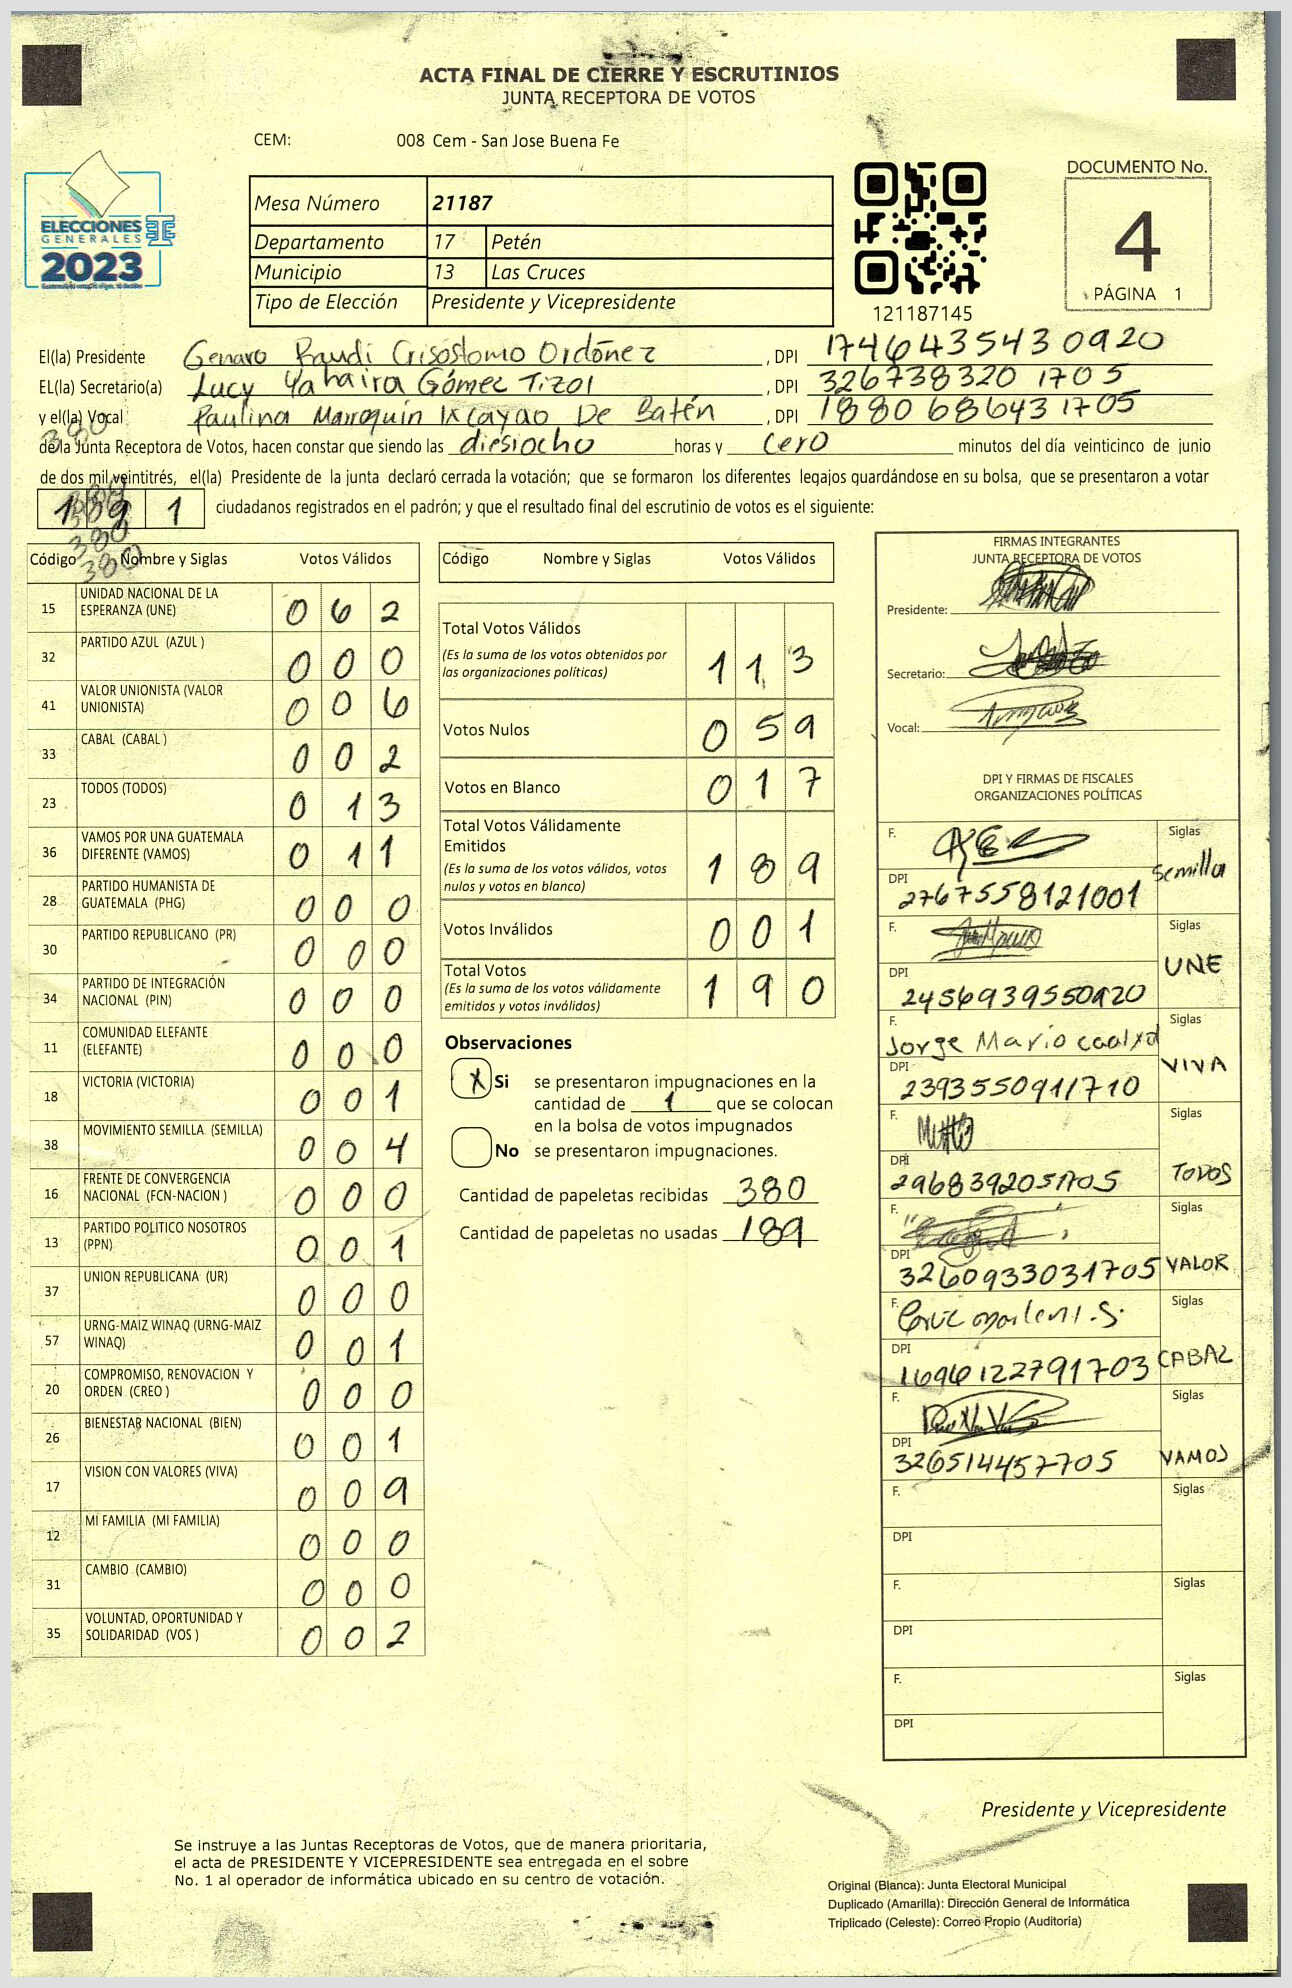 ACTA FINAL DE CIERRE Y ESCRUTINIOS
JUNTA RECEPTORA DE VOTOS
CEM: 008 Cem - San Jose Buena Fe
DOCUMENTO No.
4
PÁGINA 1
ELECCIONES
GENERALES
2023
Mesa Número 21187
Departamento 17 Petén
Municipio 13 Las Cruces
Tipo de Elección Presidente y Vicepresidente
121187145
El(la) Presidente Genaro Raudi Crisóstomo Ordóñez, DPI 1746435430920
EL(la) Secretario(a) Lucy Yahaira Gómez Tizol, DPI 326738320 1705
y el(la) Vocal Paulina Marroquín Ixcayao De Batén, DPI 1880686431705
380
de la Junta Receptora de Votos, hacen constar que siendo las diesiocho horas y cero minutos del día veinticinco de junio
de dos mil veintitrés, el(la) Presidente de la junta declaró cerrada la votación; que se formaron los diferentes legajos guardándose en su bolsa, que se presentaron a votar
1 9 1 ciudadanos registrados en el padrón; y que el resultado final del escrutinio de votos es el siguiente:
380
380
Código Nombre y Siglas Votos Válidos
15 UNIDAD NACIONAL DE LA ESPERANZA (UNE) 0 6 2
32 PARTIDO AZUL (AZUL ) 0 0 0
41 VALOR UNIONISTA (VALOR UNIONISTA) 0 0 6
33 CABAL (CABAL ) 0 0 2
23 TODOS (TODOS) 0 1 3
36 VAMOS POR UNA GUATEMALA DIFERENTE (VAMOS) 0 1 1
28 PARTIDO HUMANISTA DE GUATEMALA (PHG) 0 0 0
30 PARTIDO REPUBLICANO (PR) 0 0 0
34 PARTIDO DE INTEGRACIÓN NACIONAL (PIN) 0 0 0
11 COMUNIDAD ELEFANTE (ELEFANTE) 0 0 0
18 VICTORIA (VICTORIA) 0 0 1
38 MOVIMIENTO SEMILLA (SEMILLA) 0 0 4
16 FRENTE DE CONVERGENCIA NACIONAL (FCN-NACION ) 0 0 0
13 PARTIDO POLITICO NOSOTROS (PPN) 0 0 1
37 UNION REPUBLICANA (UR) 0 0 0
57 URNG-MAIZ WINAQ (URNG-MAIZ WINAQ) 0 0 1
20 COMPROMISO, RENOVACION Y ORDEN (CREO ) 0 0 0
26 BIENESTAR NACIONAL (BIEN) 0 0 1
17 VISION CON VALORES (VIVA) 0 0 9
12 MI FAMILIA (MI FAMILIA) 0 0 0
31 CAMBIO (CAMBIO) 0 0 0
35 VOLUNTAD, OPORTUNIDAD Y SOLIDARIDAD (VOS ) 0 0 2
Código Nombre y Siglas Votos Válidos
Total Votos Válidos 1 1 3
(Es la suma de los votos obtenidos por
las organizaciones políticas)
Votos Nulos 0 5 9
Votos en Blanco 0 1 7
Total Votos Válidamente
Emitidos 1 8 9
(Es la suma de los votos válidos, votos
nulos y votos en blanco)
Votos Inválidos 0 0 1
Total Votos 1 9 0
(Es la suma de los votos válidamente
emitidos y votos inválidos)
Observaciones
X Si se presentaron impugnaciones en la
cantidad de 1 que se colocan
en la bolsa de votos impugnados
No se presentaron impugnaciones.
Cantidad de papeletas recibidas 380
Cantidad de papeletas no usadas 189
FIRMAS INTEGRANTES
JUNTA RECEPTORA DE VOTOS
Presidente:
Secretario:
Vocal:
DPI Y FIRMAS DE FISCALES
ORGANIZACIONES POLÍTICAS
F. Siglas
DPI 2767558121001 Semilla
F. Siglas
DPI 2456939550920 UNE
F. Jorge Mario Siglas
DPI 2393550911710 VIVA
F. Siglas
DPI 2968392051705 TODOS
F. Siglas
DPI 3260933031705 VALOR
F. Siglas
DPI 1696122791703 CABAL
F. Siglas
DPI 326514457705 VAMOS
F. Siglas
DPI
F. Siglas
DPI
F. Siglas
DPI
Presidente y Vicepresidente
Se instruye a las Juntas Receptoras de Votos, que de manera prioritaria,
el acta de PRESIDENTE Y VICEPRESIDENTE sea entregada en el sobre
No. 1 al operador de informática ubicado en su centro de votación.
Original (Blanca): Junta Electoral Municipal
Duplicado (Amarilla): Dirección General de Informática
Triplicado (Celeste): Correo Propio (Auditoría)